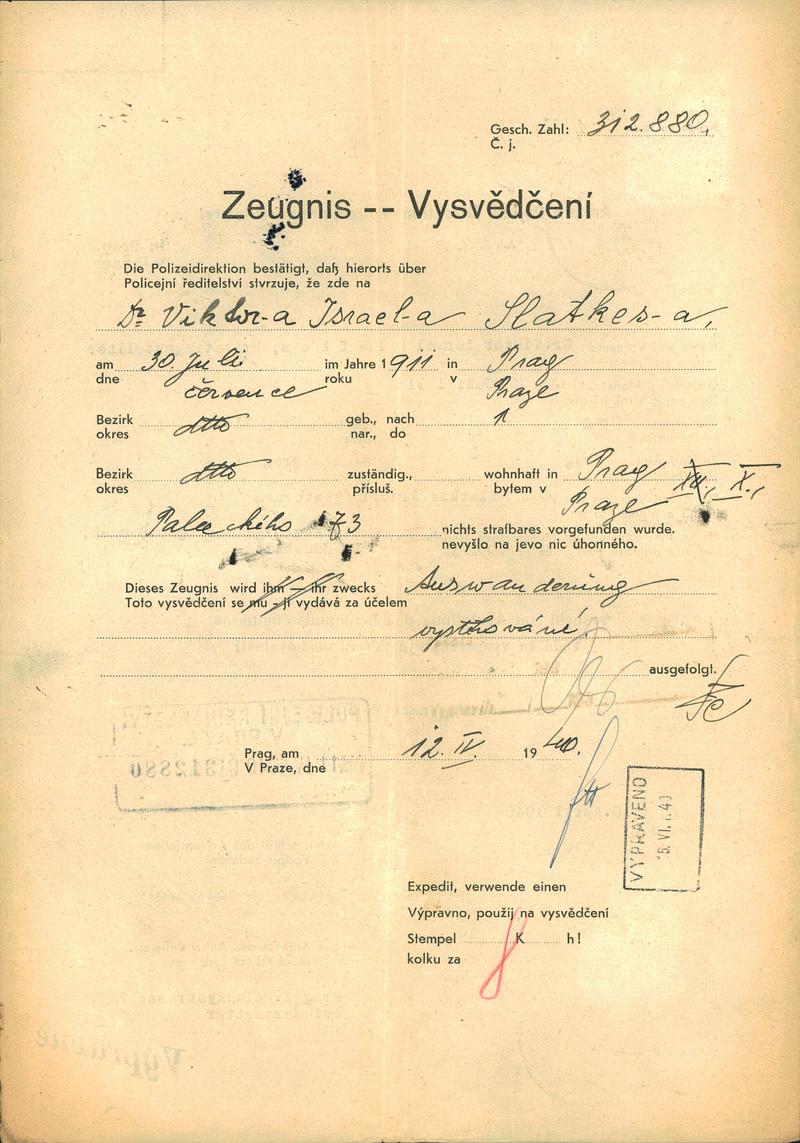 Gesch. Zahl: 312.880.
Č. j.
Zeugnis -- Vysvědčení
Die Polizeidirektion bestätigt, daß hierorts über
Policejní ředitelství stvrzuje, že zde na
Dr Viktor-a Israel-a Slatkes-a,
am 30. Juli im Jahre 1911 in Prag
dne července roku v Praze
Bezirk dtto geb., nach 1
okres nar., do
Bezirk dtto zuständig., wohnhaft in Prag XII., X.,
okres přísluš. bytem v Praze
Palackého 73 nichts strafbares vorgefunden wurde.
nevyšlo na jevo nic úhonného.
Dieses Zeugnis wird ihm – ihr zwecks Auswanderung
Toto vysvědčení se mu - jí vydává za účelem
vystěhování.
ausgefolgt.
Prag, am 12. IV. 1940.
V Praze, dne
VYPRAVENO
15. VI. 40
Expedit, verwende einen
Výpravno, použij na vysvědčení
Stempel K h!
kolku za